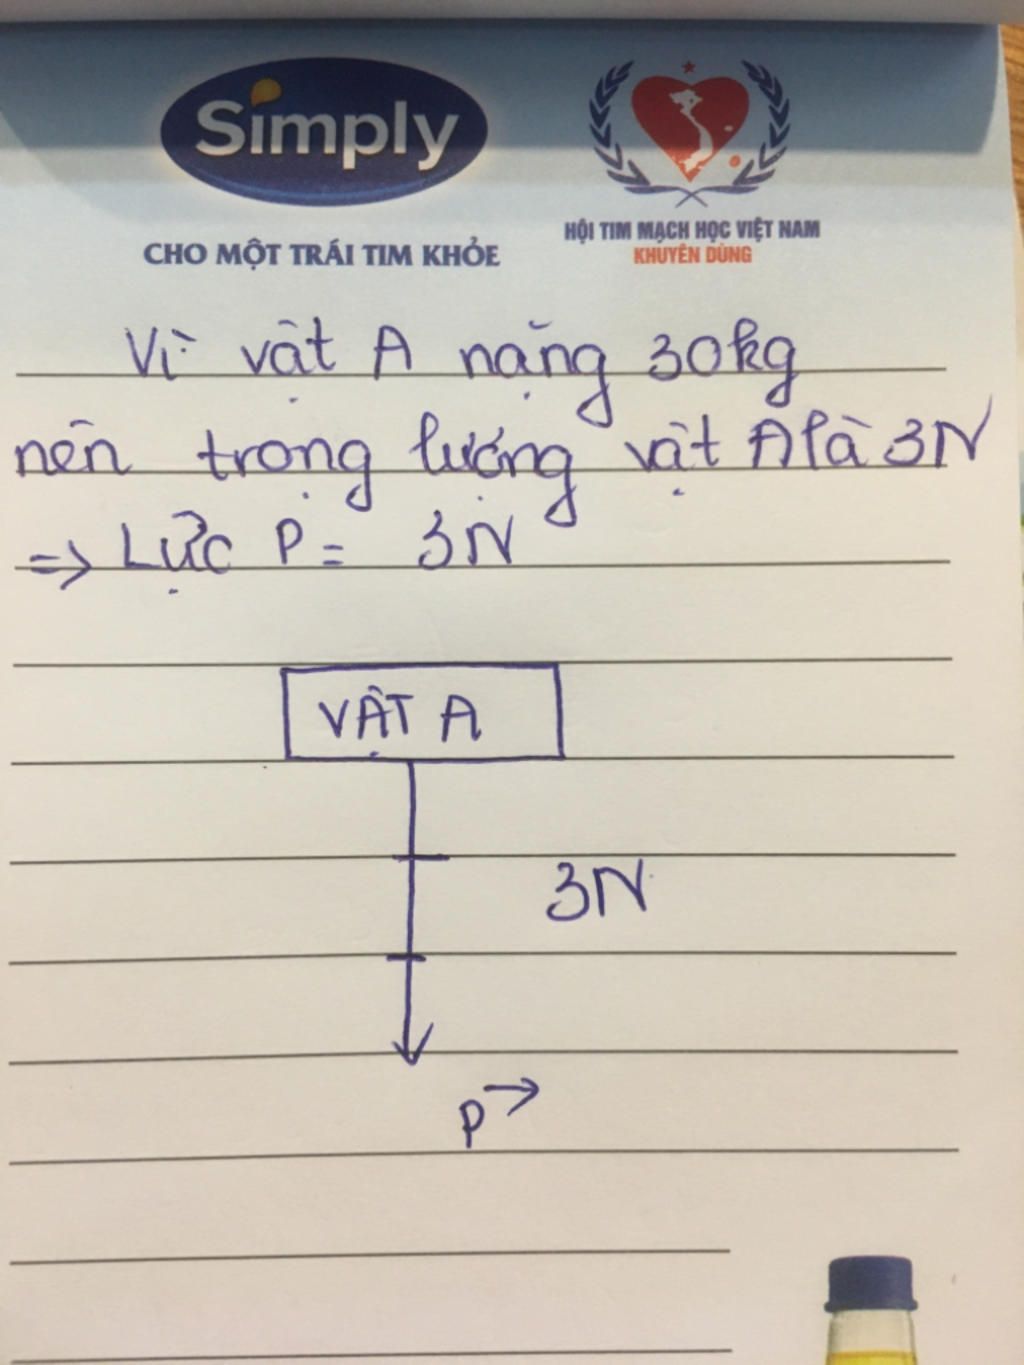 Simply
CHO MỘT TRÁI TIM KHỎE
HỘI TIM MẠCH HỌC VIỆT NAM
KHUYÊN DÙNG
Vì vật A nặng 30kg
nên trọng lượng vật A là 3N
=> Lực P = 3N
VẬT A
3N
P→